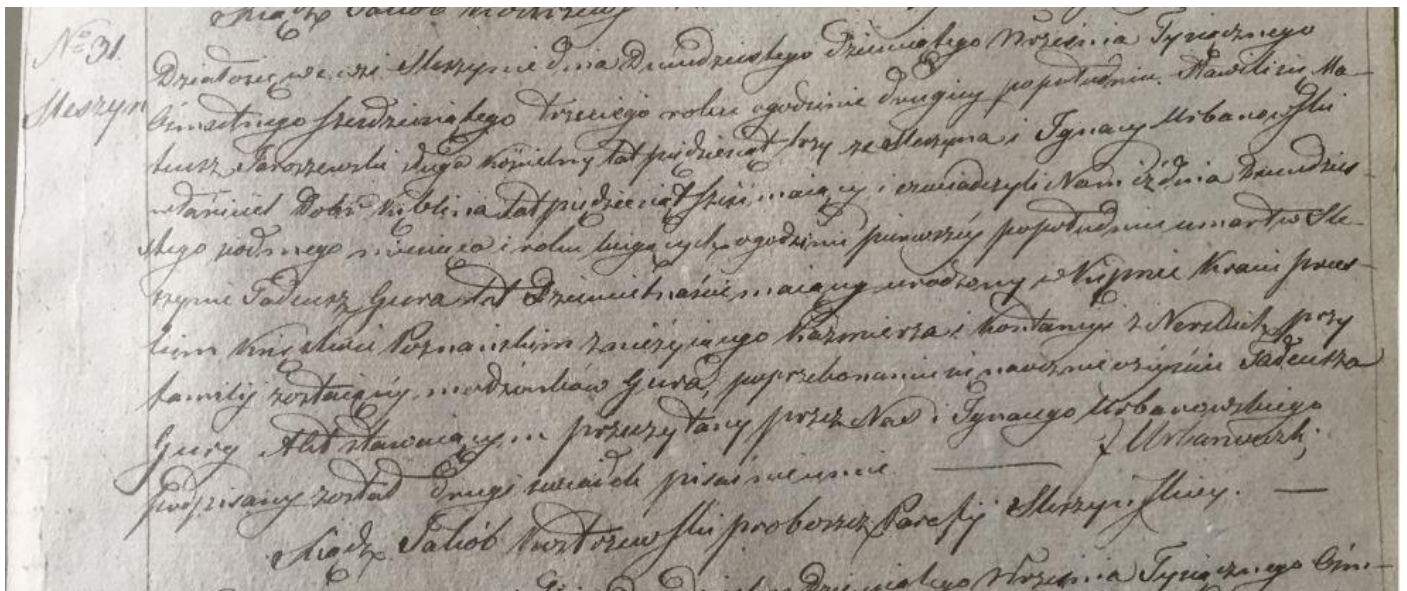 Ksiądz Jakób
№ 31. Działo się we wsi Sleszynie dnia Dwudziestego Dziewiątego Września Tysiącznego
Sleszyn Osmsetnego sześdziesiątego trzeciego roku ogodzinie drugiey popołudniu. Stawili się Ma-
teusz Jaroszewski sługa kościelny lat piędziesiąt trzy ze Sleszyna i Ignacy Urbanowski
właściciel Dobr Kublina lat piędziesiąt sześć maiący i oswiadczyli Nam iż dnia Dwudzies-
tego miesiąca i roku bieżących ogodzinie pierwszéy popołudniu umarł w Sle-
szynie Tadeusz Gura lat Dziewietnaście maiący urodzony w Kraiu prus-
kim Xięstwie Poznańskim z nieżyiącego Kaźmierza i Konstancyi z przy
familij zostaiącéy małżonków Gura, poprzekonaniu się naocznie o zejściu Tadeusza
Gury Akt stawaiącym przeczytany przez Nas i Ignacego Urbanowskiego
podpisany został drugi swiadek pisać nieumie. — J Urbanowski
Ksiądz Jakób proboszcz Parafij Sleszyńskiey. —
Dziewiątego Września Tysiącznego Osm-